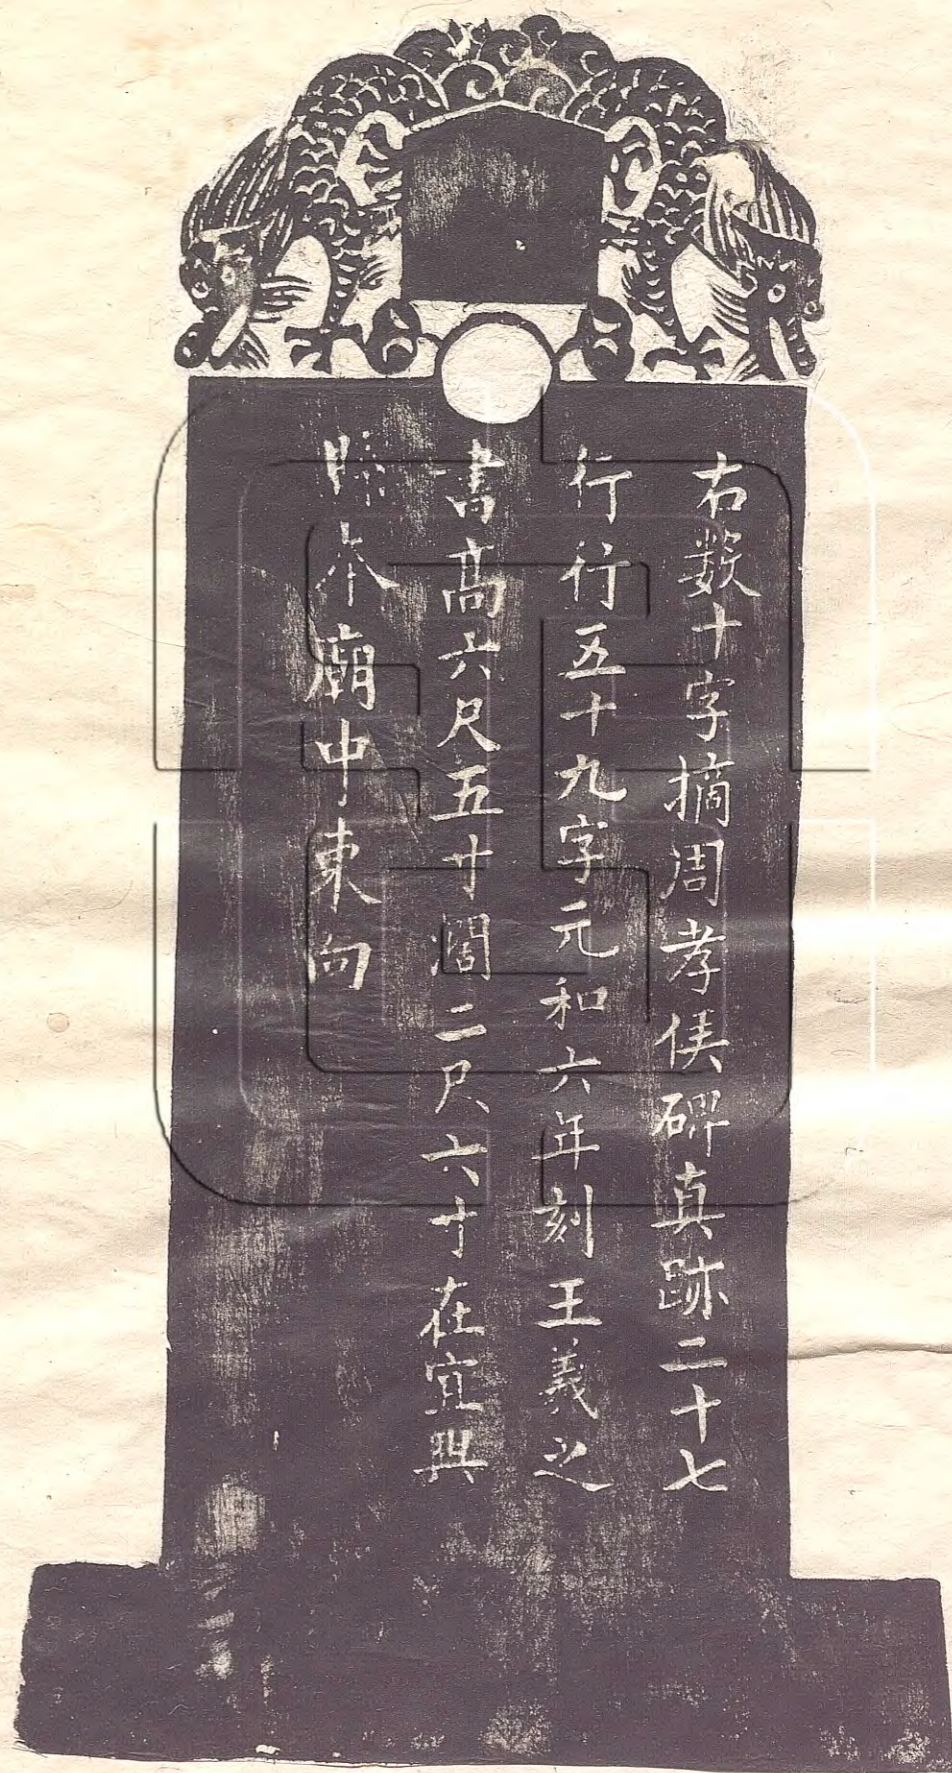 右数十字摘周孝侯碑真跡二十七
行行五十九字元和六年刻王羲之
書高六尺五寸濶二尺六寸在宜興
縣本廟中東向